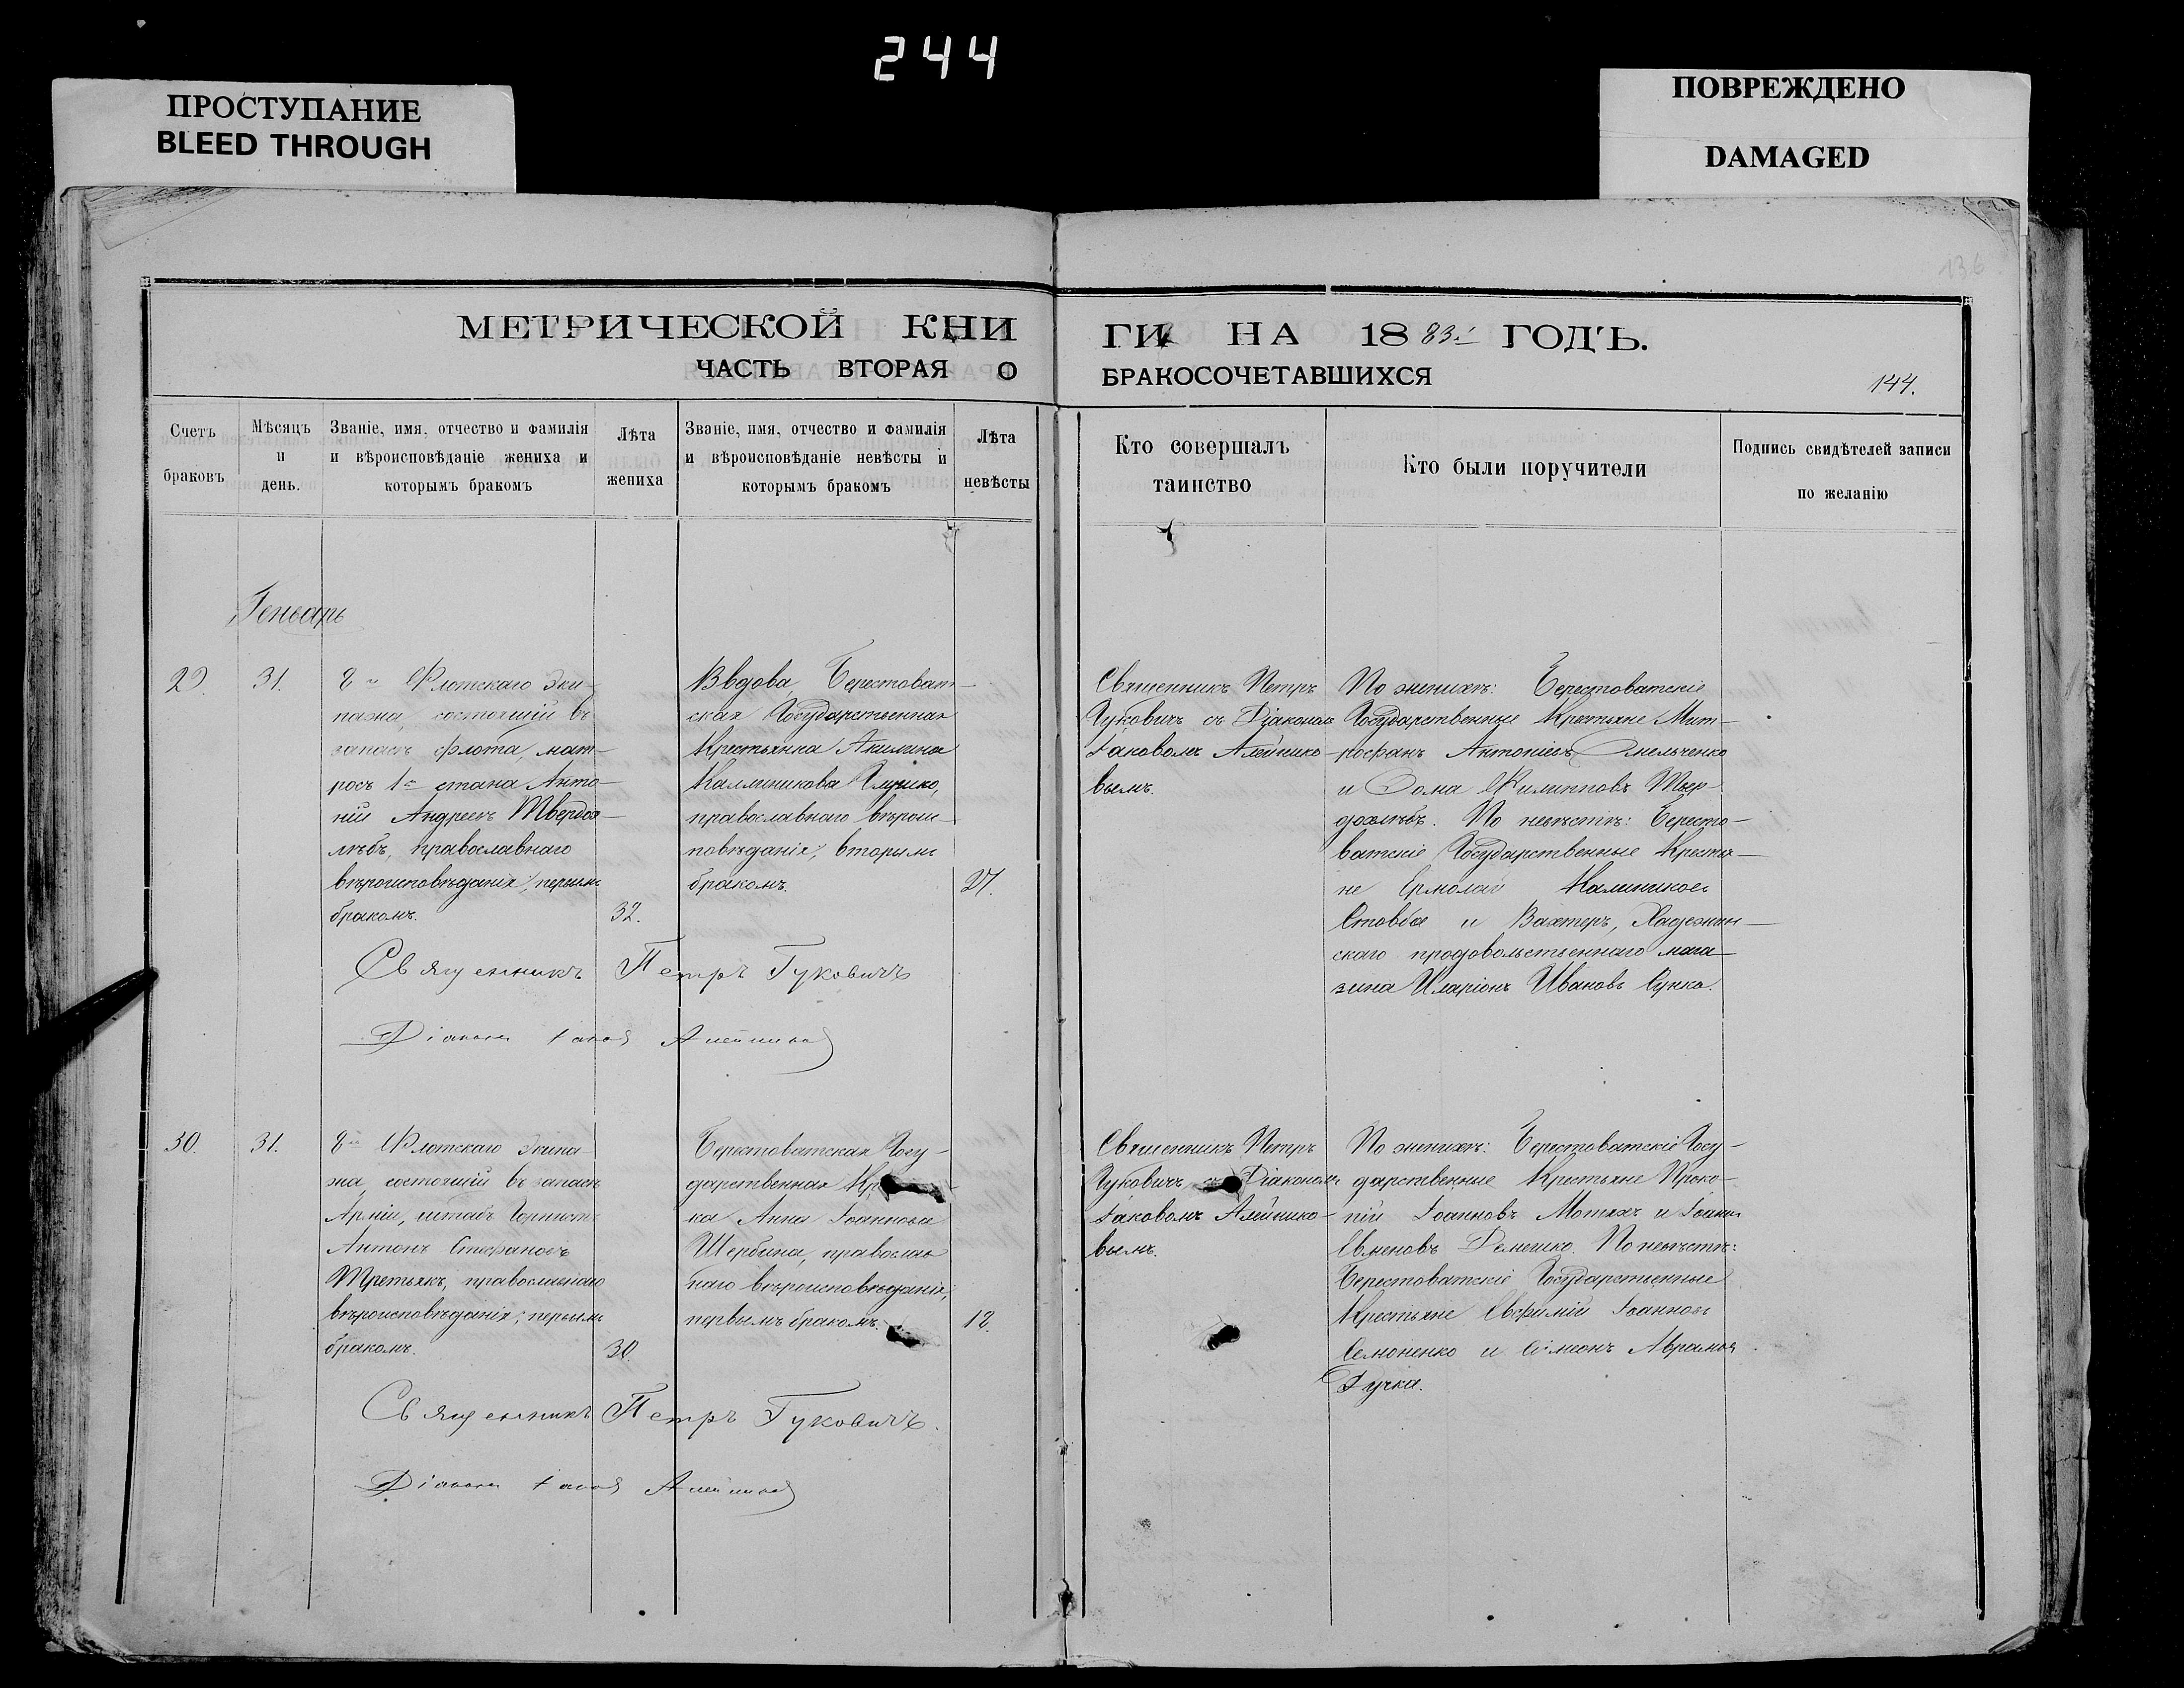 244
ПРОСТУПАНИЕ
BLEED THROUGH
ПОВРЕЖДЕНО
DAMAGED
136
МЕТРИЧЕСКОЙ КНИ
ГИ НА 1883й ГОДЪ.
ЧАСТЬ ВТОРАЯ О
БРАКОСОЧЕТАВШИХСЯ
144.
Счетъ
браковъ
Мѣсяцъ
и
день.
Званіе, имя, отчество и фамилія
и вѣроисповѣданіе жениха и
которымъ бракомъ
Лѣта
жениха
Званіе, имя, отчество и фамилія
и вѣроисповѣданіе невѣсты и
которымъ бракомъ
Лѣта
невѣсты
Кто совершалъ
таинство
Кто были поручители
Подпись свидѣтелей записи
по желанію
Генварь
29.
31.
8го Флотскаго Эки-
пажа, состоящій въ
запасѣ флота, мат-
росъ 1й Анто-
ній Андреевъ Твердох-
лѣбъ, православнаго
вѣроисповѣданія, первымъ
бракомъ.
32.
Вдова, Берестоват-
ская Государственная
Крестьянка Акилина
Каллиникова
православнаго вѣроис-
повѣданія, вторымъ
бракомъ.
27.
Священникъ Петръ
Гуковичъ съ Діакономъ
Іаковомъ Алейнико-
вымъ.
По женихѣ: Берестоватскіе
Государственные Крестьяне Мит-
рофанъ Антоніевъ Омельченко
и Ѳома Филипповъ Твер-
дохлѣбъ. По невѣстѣ: Бересто-
ватскіе Государственные Крестья-
не Ермолай Калиниковъ
и Вахтеръ,
скаго продовольственнаго мага-
зина Иларіонъ Ивановъ
Священникъ Петръ Гуковичъ
Діаконъ Іаковъ Алейниковъ
30.
31.
8го Флотскаго Экипа-
жа, состоящій въ запасѣ
Арміи, штабъ Горнистъ
Антонъ Стефановъ
Третьякъ, православнаго
вѣроисповѣданія, первымъ
бракомъ.
30.
Берестоватская Госу-
дарственная Кр
ка Анна Іоаннова
Щербина, православ
наго вѣроисповѣданія,
первымъ бракомъ.
Священникъ Петръ
Гуковичъ съ Діакономъ
Іаковомъ Алейнико-
вымъ.
По женихѣ: Берестоватскіе Госу-
дарственные Крестьяне Проко-
пій Іоанновъ и Іоаннъ
Евменовъ Демешко. По невѣстѣ:
Берестоватскіе Государственные
Крестьяне Евфимій Іоанновъ
Семоненко и Симеонъ Аврамовъ
Священникъ Петръ Гуковичъ.
Діаконъ Іаковъ Алейниковъ